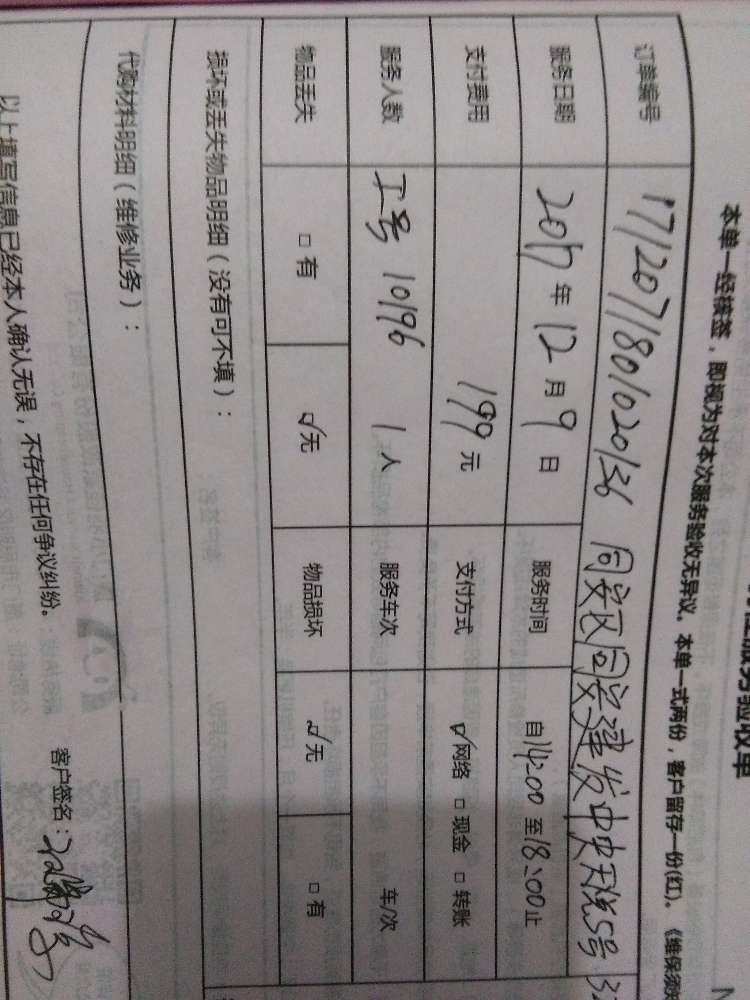 服务验收单
本单一经核签，即视为对本次服务验收无异议。本单一式两份，客户留存一份(红)。《维保须
订单编号 171207180102036 同安区同安建发中央天悦5号
服务日期 2017年12月9日 服务时间 自14:00至18:00止
支付费用 199元 支付方式 ☑网络 □现金 □转账
服务人数 工号 10196 1人 服务车次 车/次
物品丢失 □有 ☑无 物品损坏 ☑无 □有
损坏或丢失物品明细（没有可不填）：
代购材料明细（维修业务）：
以上填写信息已经本人确认无误，不存在任何争议纠纷。
客户签名：